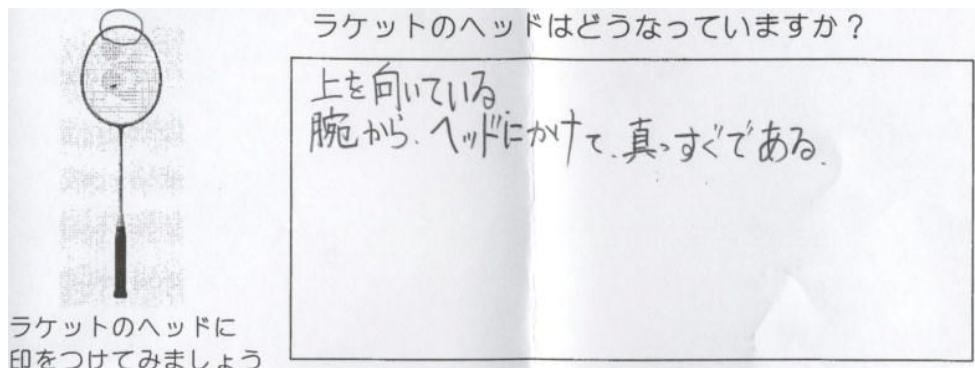 ラケットのヘッドはどうなっていますか？
上を向いている
腕から、ヘッドにかけて、真っすぐである.
ラケットのヘッドに
印をつけてみましょう